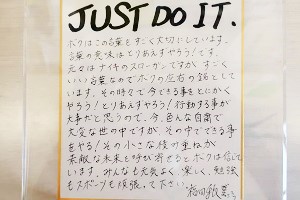 JUST DO IT.
ボクはこの言葉をすごく大切にしています。
言葉の意味はとりあえずやろう！です。
元々はナイキのスローガンですが、すごく
いい言葉なのでボクの座右の銘として
います。その時々で今できる事をとにかく
やろう！とりあえずやろう！行動する事が
大事だと思うので、今、色んな自粛で
大変な世の中ですが、その中でできる事
をやる！その小さな積の重ねが
素敵な未来を呼び寄せるとボクは信じて
います。みんなも元気よく、楽しく、勉強
もスポーツも頑張って下さい。